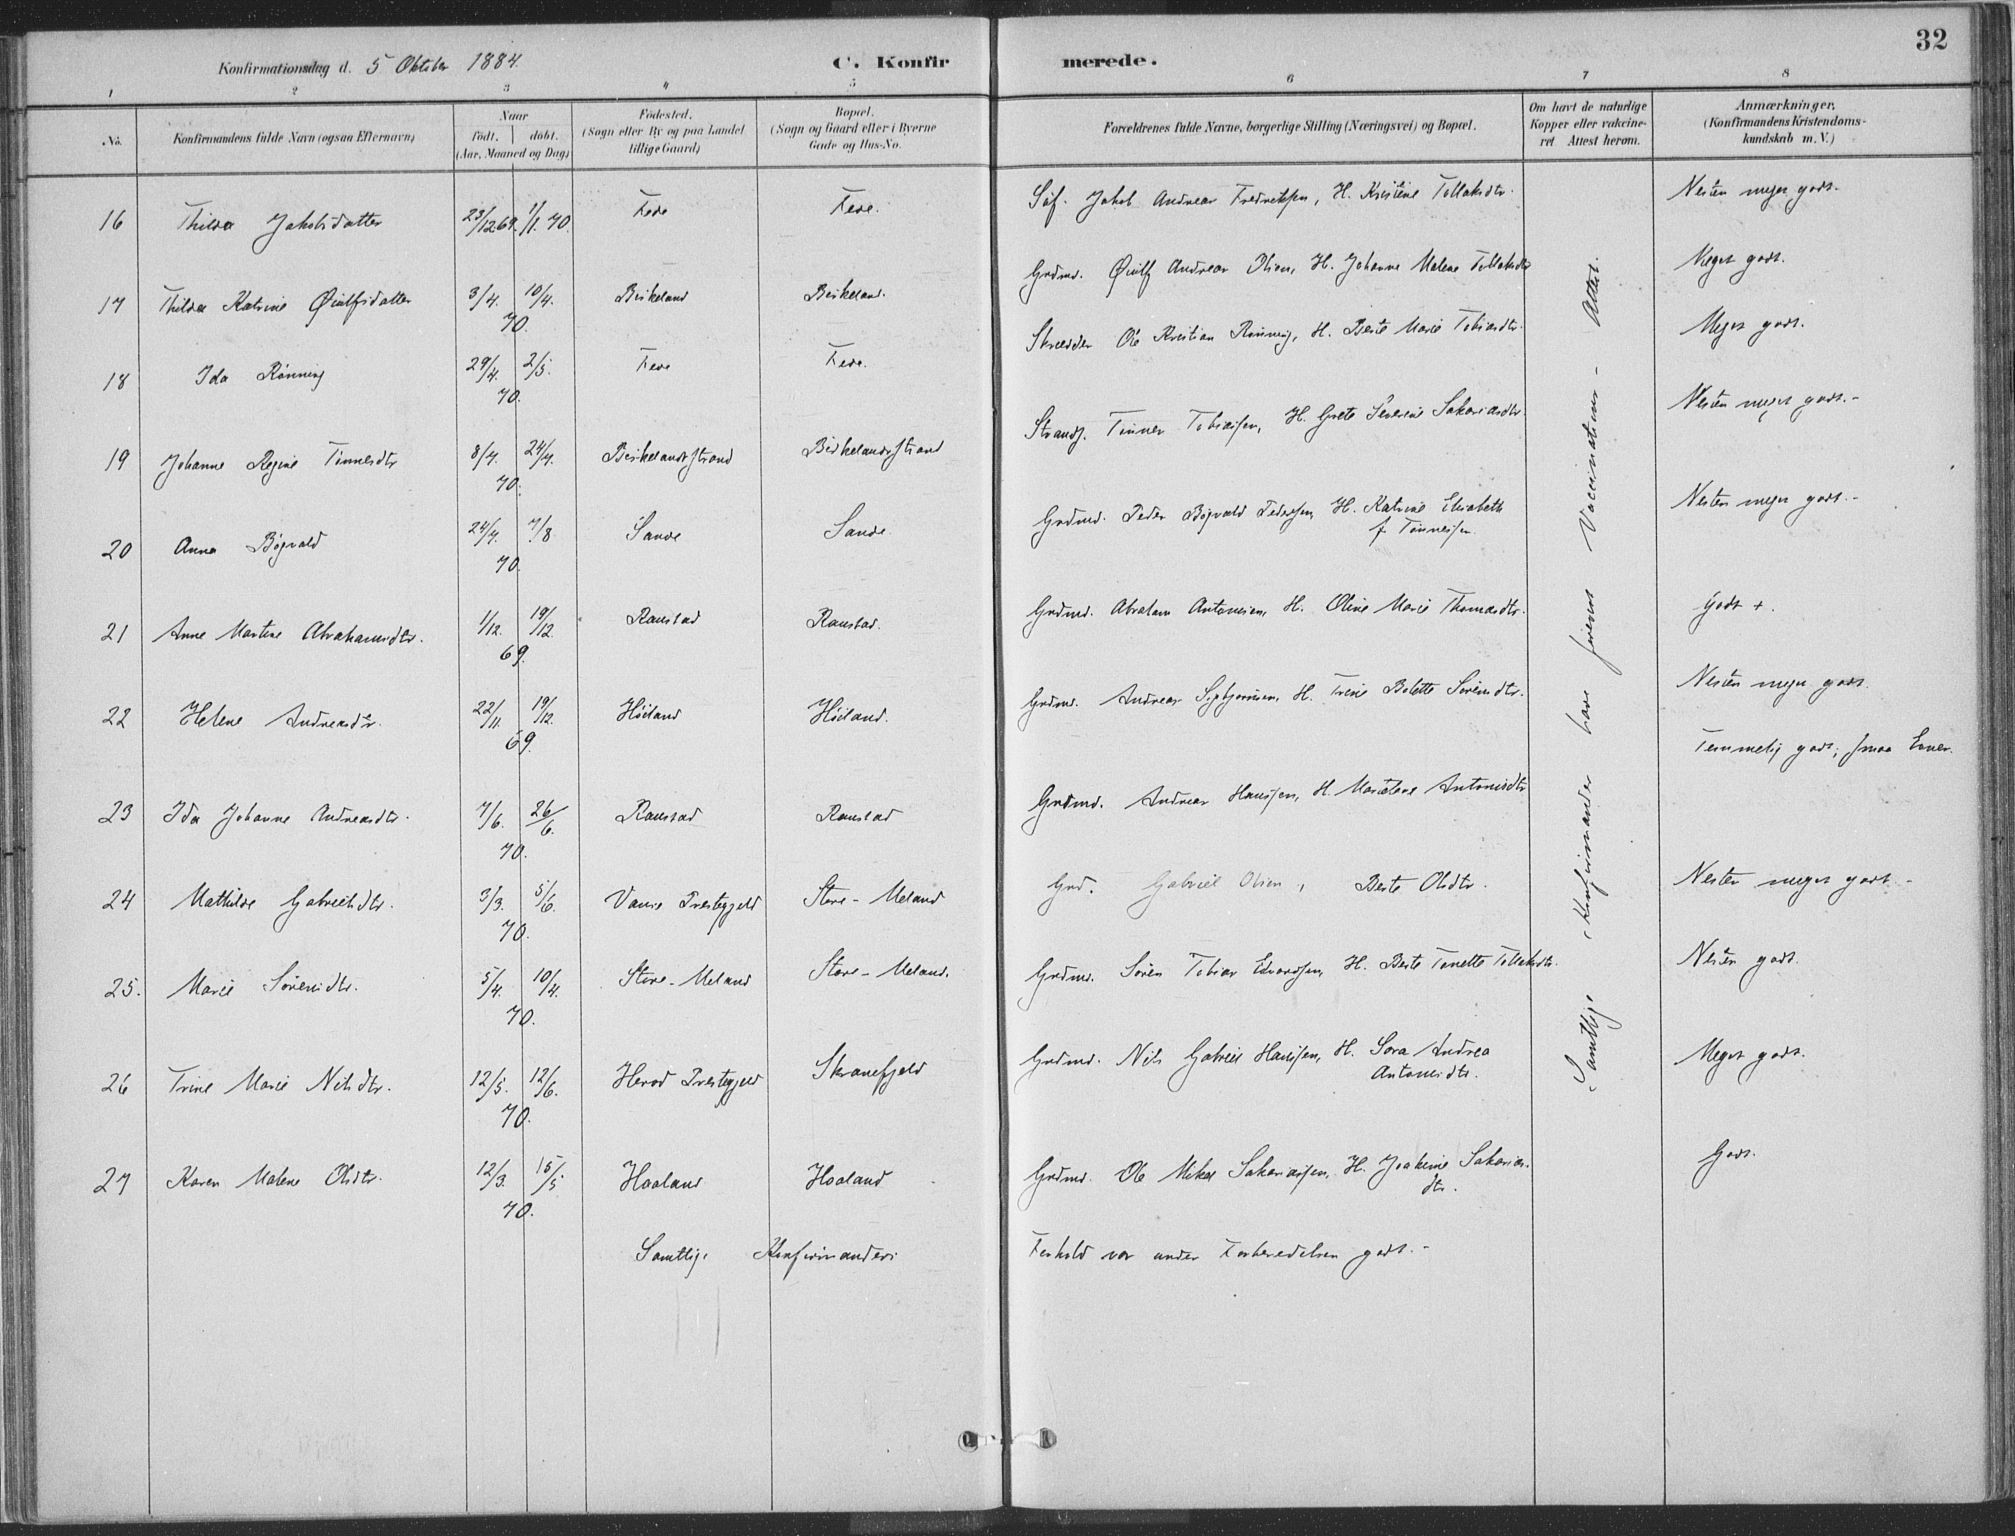 32
Konfirmationsdag d. 5 Oktober 1884.
C. Konfirmerede.
1 2 3 4 5 6 7 8
No. Konfirmandens fulde Navn (ogsaa Efternavn) Naar født. døbt. (Aar, Maaned og Dag) Fødested. (Sogn eller By og paa Landet tillige Gaard) Bopæl. (Sogn og Gaard eller i Byerne Gade og Hus-No. Forældrenes fulde Navne, borgerlige Stilling (Næringsvei) og Bopæl. Om havt de naturlige Kopper eller vakcineret Attest herom. Anmærkninger. (Konfirmandens Kristendomskundskab m. V.)
16 Thilda Jakobsdatter 23/12 69. 1/1. 70. Fede Fede. Jakob Andreas Fredriksen, H. Kristine Tollaksdtr. Nesten meget godt.
17 Thilda Katrine Øiulfsdatter 3/4. 10/4. 70. Birkeland Birkeland. Grdmd. Øiulf Andreas Olsen, H. Johanne Malene Tollaksdtr Meget godt.
18 Ida Rønning 29/4. 2/5. 70. Fede Fede. Skrædder Ole Kristian Rønning, H. Berte Marie Tobiasdtr. Meget godt.
19 Johanne Regine Tønnesdtr 8/7. 24/7. 70. Birkelandsstrand Birkelandsstrand Strands. Tønnes Tobiasen, H. Grete Severine Sakariasdtr. Nesten meget godt.-
20 Anna Bøgvald 24/7. 7/8 70. Sande Sande. Grdmd. Peder Bøgvald Pedersen, H. Katrine Elisabeth f. Tønnesen. Nesten meget godt.-
21 Anne Martine Abrahamsdtr. 1/12. 19/12. 69. Raustad Raustad. Grdmd. Abraham Antonsen, H. Oline Marie Thomasdtr. godt +.
22 Helene Andreasdtr. 22/11. 19/12. 69. Høiland Høiland. Grdmd. Andreas Sigbjørnsen, H. Trine Bolette Sørensdtr. Nesten meget godt.
23 Ida Johanne Andreasdtr. 7/6. 26/6. 70. Raustad Raustad Grdmd. Andreas Hanssen, H. Antonisdtr Temmelig godt; smaa Evner.
24 Mathilde Gabrielsdtr. 3/3. 5/6. 70. Vanse Prestegjeld Store-Meland Grd. Gabriel Olsen, Berte Olsdtr. Nesten meget godt.-
25. Marie Sørensdtr. 5/4. 10/4. 70. Store-Meland Store-Meland. Grdmd. Søren Tobias Edvardsen, H. Berte Tonette Tollaksdtr. Nesten godt.
26 Trine Marie Nilsdtr. 12/5. 12/6. 70. Herad Prestegjeld Skranefjeld Grdmd. Nils Gabriel Hansen, H. Sara Andrea Antonisdtr. Meget godt.
27 Karen Malene Olsdtr. 12/3. 15/5 70. Haaland Haaland Grdmd. Ole Mikal Sakariasen, H. Joakime Sakariasdtr. Godt.
Samtlige Konfirmanders Forhold var under Forberedelsen godt.-
Samtlige Konfirmander have forevist Vaccinations-Attest.